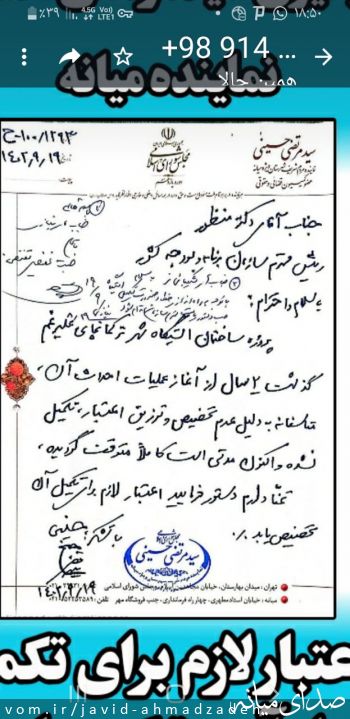 ۱۸:۵۰
٪۳۹
4.5G
LTE1
+98 914 ...
همین حالا
نماینده میانه
مجلس شورای اسلامی
سید مرتضی حسینی
۱۰۰/۱۲۹۳-ح
۱۴۰۲/۹/۱۹
جناب آقای دکتر منظور
ریاست محترم سازمان برنامه و بودجه کشور
با سلام و احترام؛
پروژه ساختمان ایستگاه شهر ترکمانچای علیرغم
گذشت ۲ سال از آغاز عملیات احداث آن
متاسفانه به دلیل عدم تخصیص و تزریق اعتبار، تکمیل
نشده و اکنون مدتی است کاملاً متوقف گردیده،
تمنا دارم دستور فرمایید اعتبار لازم برای تکمیل آن
تخصیص یابد.
با تشکر حسینی
سید مرتضی حسینی
تهران، میدان بهارستان، خیابان
شورای اسلامی
میانه، خیابان استاد مطهری، چهارراه فرمانداری، جنب فروشگاه مهر
اعتبار لازم برای تکم
صدای میانه
vom.ir/javid-ahmadzade